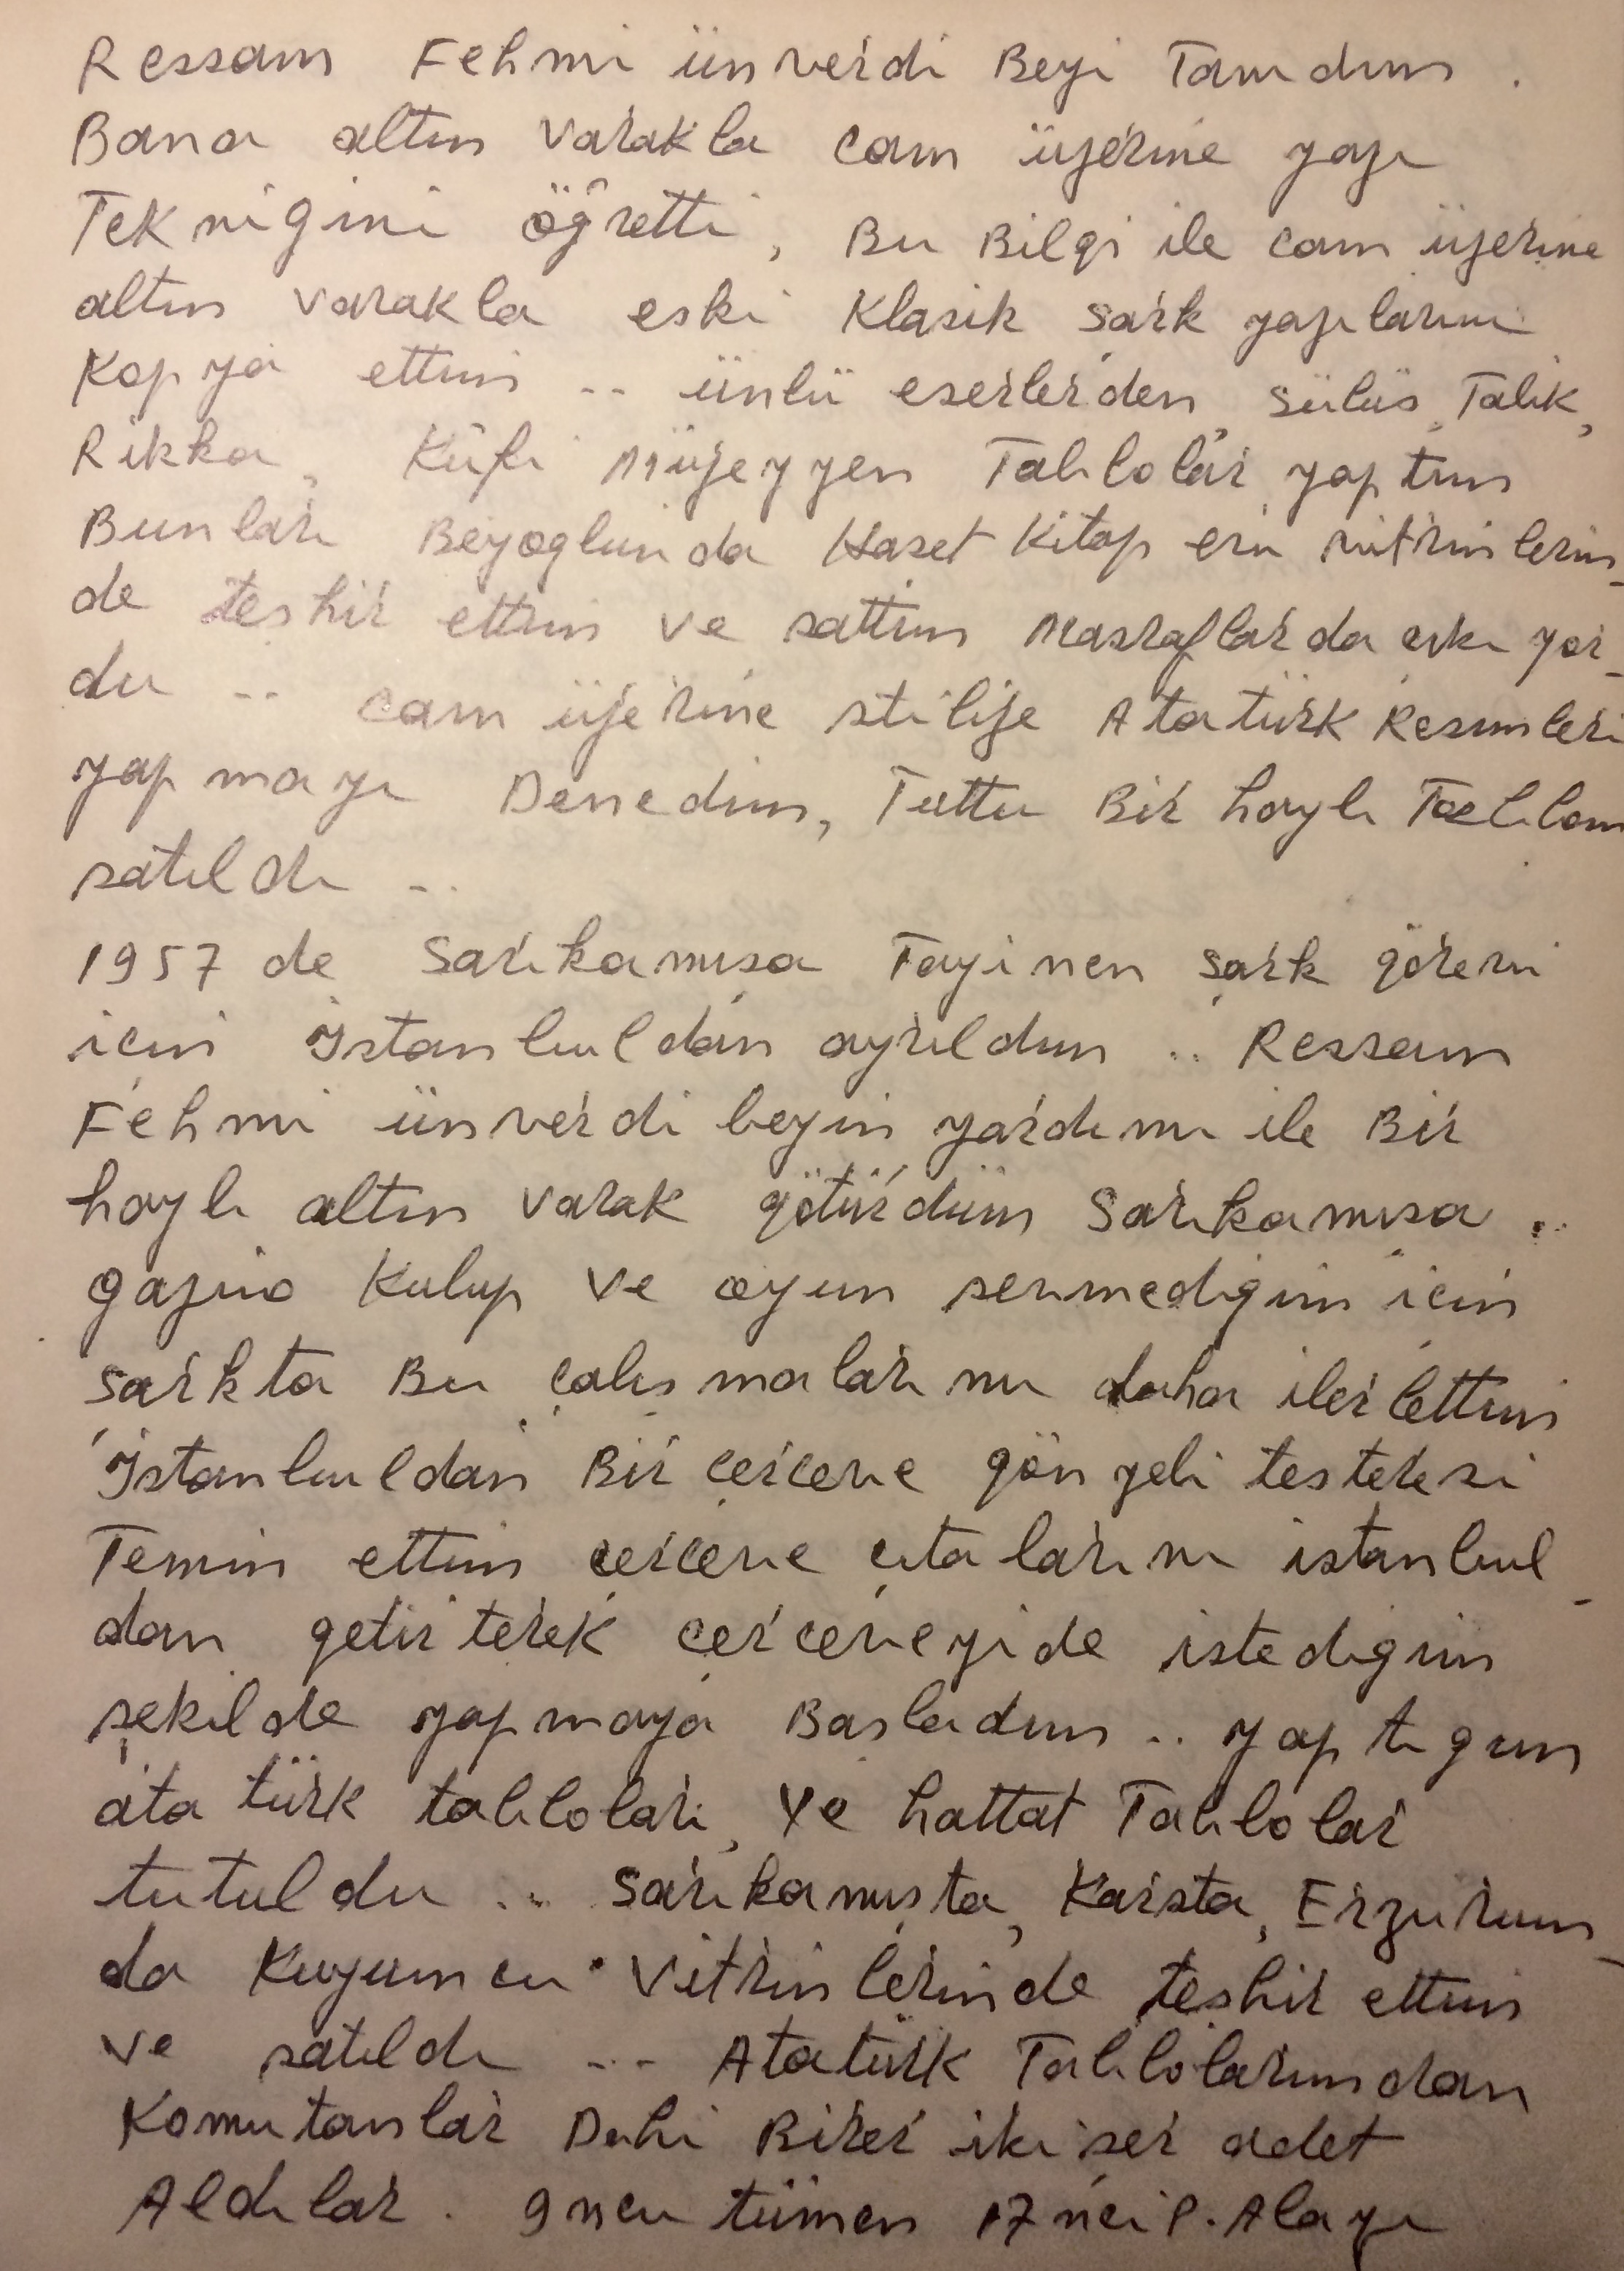 Ressam Fehmi ünverdi Beyi Tanıdım .
Bana altın varakla cam üzerine yazı
Teknigini öğretti, Bu Bilgi ile cam üzerine
altın varakla eski Klasik şark yazılarını
Kopya ettim .. ünlü eserlerden, sülüs, Talik,
Rikka, Kûfi Müzeyyen Tablolar yaptım
Bunları Beyoglunda Haset Kitap evi vitrinlerin_
de teshir ettim ve sattım Masraflarda cıkıyor_
du .. cam üzerine stilize Atatürk Resimleri
yapmayı Denedim, Tuttu Bir hayli Tablom
satıldı ..
1957 de Sarıkamışa Tayinen şark görevi
için İstanbuldan ayrıldım .. Ressam
Fehmi ünverdi beyin yardımı ile Bir
hayli altın varak götürdüm Sarıkamışa ..
gazino Kulup ve oyun sevmedigim için
şarkta Bu çalışmalarımı daha ilerlettim
İstanbuldan Bir çerçeve gönyeli testeresi
Temin ettim çerçeve çıtalarını istanbul_
dan getirterek çerçeveyide istedigim
şekilde yapmaya Basladım .. yaptıgım
ata türk tabloları, ve hattat Tablolar
tutuldu .. Sarıkamışta, Karsta, Erzurum_
da Kuyumcu vitrinlerinde teşhir ettim
ve satıldı ... Atatürk Tablolarımdan
Komutanlar Dahi Birer ikişer adet
Aldılar . 9ncu tümen 17nci P. Alayı